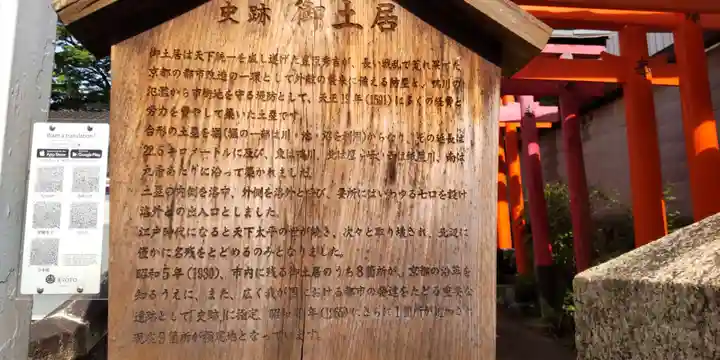 史跡 御土居
御土居は天下統一を成し遂げた豊臣秀吉が、長い戦乱で荒れ果てた
京都の都市改造の一環として外敵の襲来に備える防塁と、鴨川の
氾濫から市街地を守る堤防として、天正19年(1591)に多くの経費と
労力を費やして築いた土塁です。
台形の土塁と堀(堀の一部は川・池・沼を利用)からなり、その延長は
22.5キロメートルに及び、東は鴨川、北は鷹ヶ峯、西は紙屋川、南は
九条あたりに沿って築かれました。
土塁の内側を洛中、外側を洛外と呼び、要所にはいわゆる七口を設け
洛外との出入口としました。
江戸時代になると天下太平の世が続き、次々と取り壊され、北辺に
僅かに名残をとどめるのみとなりました。
昭和5年(1930)、市内に残る御土居のうち8箇所が、京都の沿革を
知るうえに、また、広く我が国における都市の発達をたどる重要な
遺跡として「史跡」に指定、昭和 年(1965)にさらに1箇所が追加され
現在9箇所が指定地となっています。
Want a translation?
App Store
Google Play
KYOTO